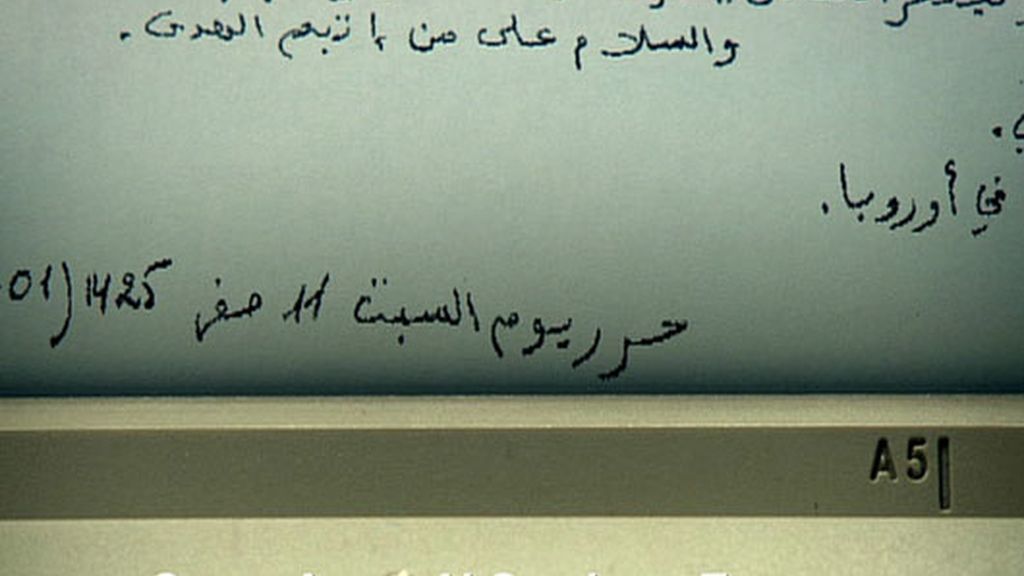 والسلام على من اتبع الهدى.
في أوروبا.
حرر يوم السبت 11 صفر 1425 (01
A5